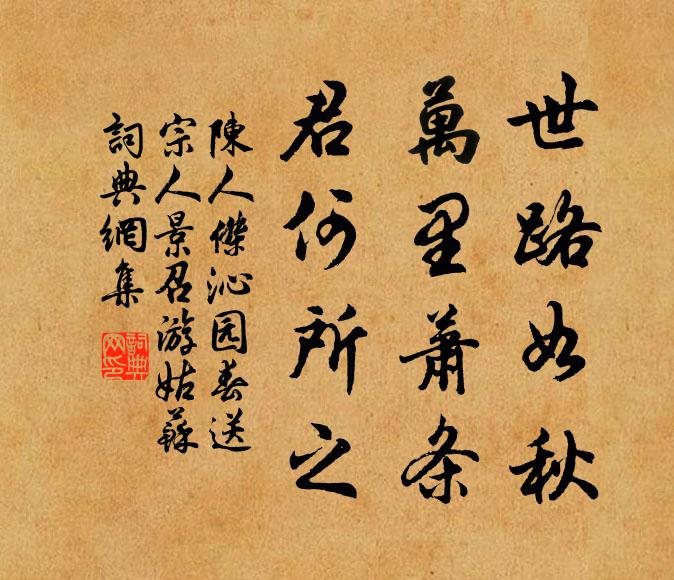 世路如秋
萬里蕭条
君何所之
陳人傑沁园春送
宗人景召游姑蘇
詞典網集
詞典
网印